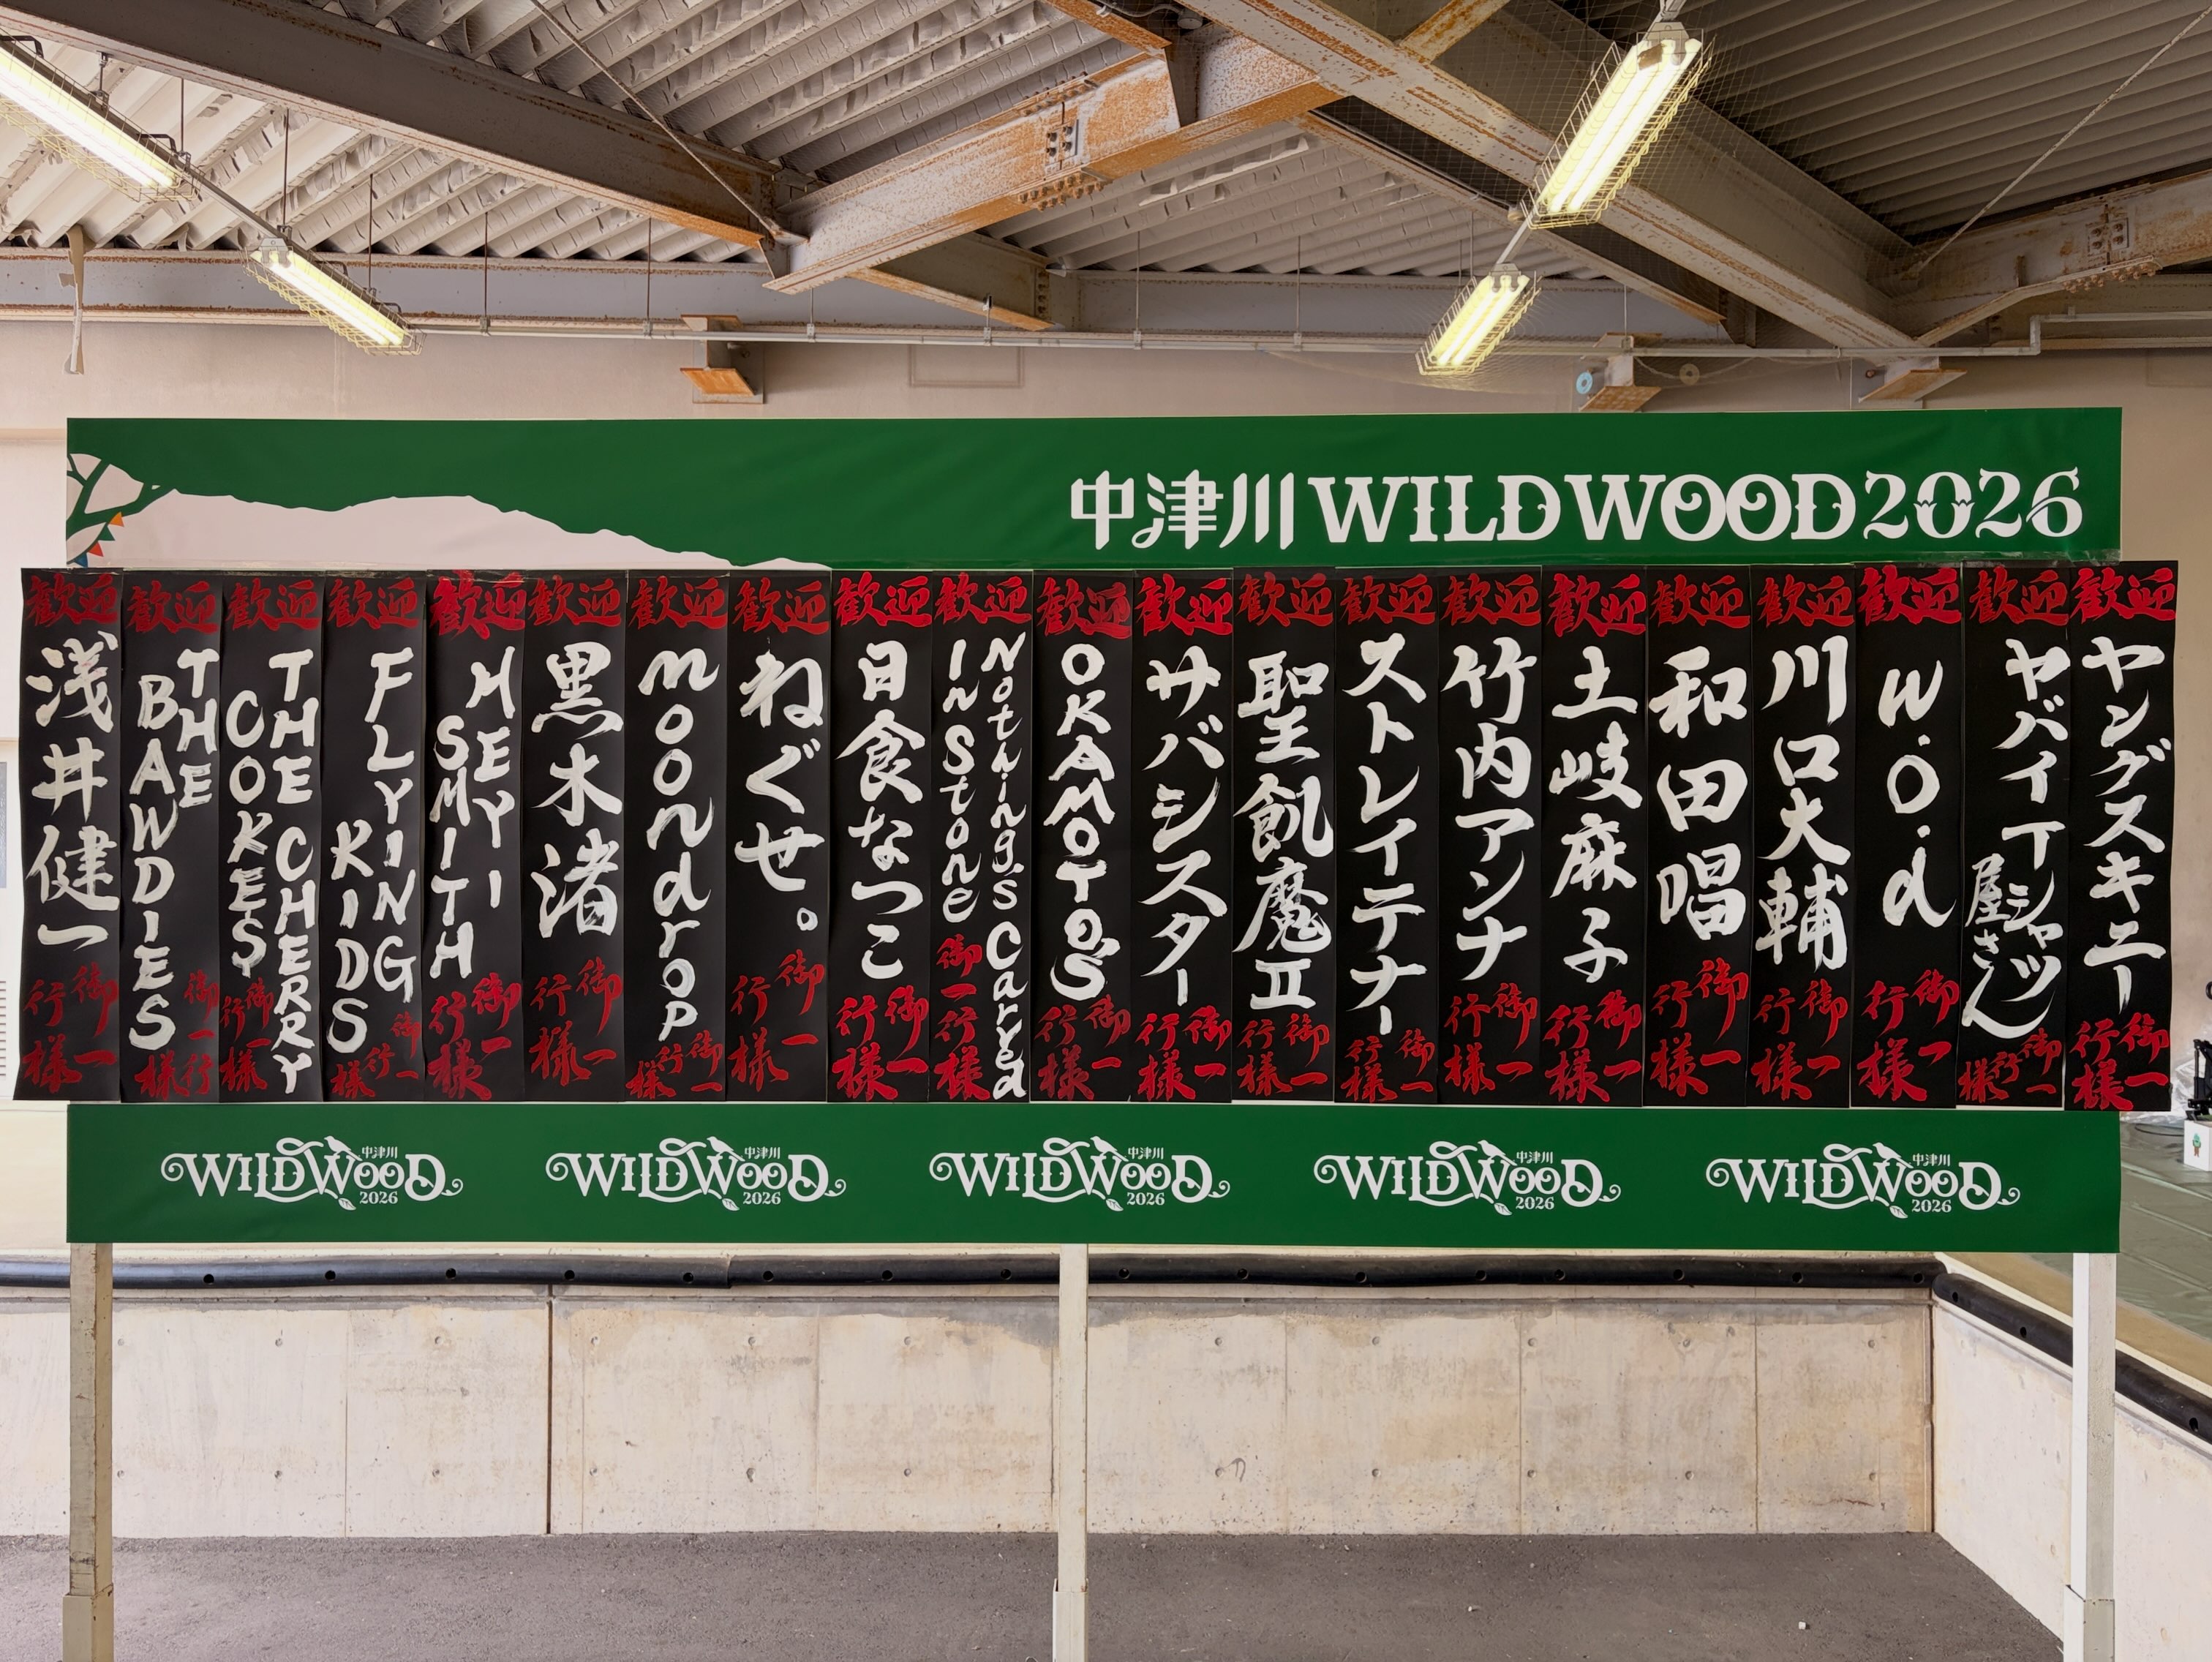 中津川 WILD WOOD 2026
歓迎
浅井健一
御一行様
歓迎
THE
BAWDIES
御一行様
歓迎
THE CHERRY
COKE$
御一行様
歓迎
FLYING
KIDS
御一行様
歓迎
HEY!
SMITH
御一行様
歓迎
黒木渚
御一行様
歓迎
moon drop
御一行様
歓迎
ねぐせ。
御一行様
歓迎
日食なつこ
御一行様
歓迎
Nothing's Carved
In Stone
御一行様
歓迎
OKAMOTO'S
御一行様
歓迎
サバシスター
御一行様
歓迎
聖飢魔II
御一行様
歓迎
ストレイテナー
御一行様
歓迎
竹内アンナ
御一行様
歓迎
土岐麻子
御一行様
歓迎
和田唱
御一行様
歓迎
川口大輔
御一行様
歓迎
w.o.d
御一行様
歓迎
ヤバイTシャツ
屋さん
御一行様
歓迎
ヤングスキニー
御一行様
WILD WOOD 中津川 2026
WILD WOOD 中津川 2026
WILD WOOD 中津川 2026
WILD WOOD 中津川 2026
WILD WOOD 中津川 2026